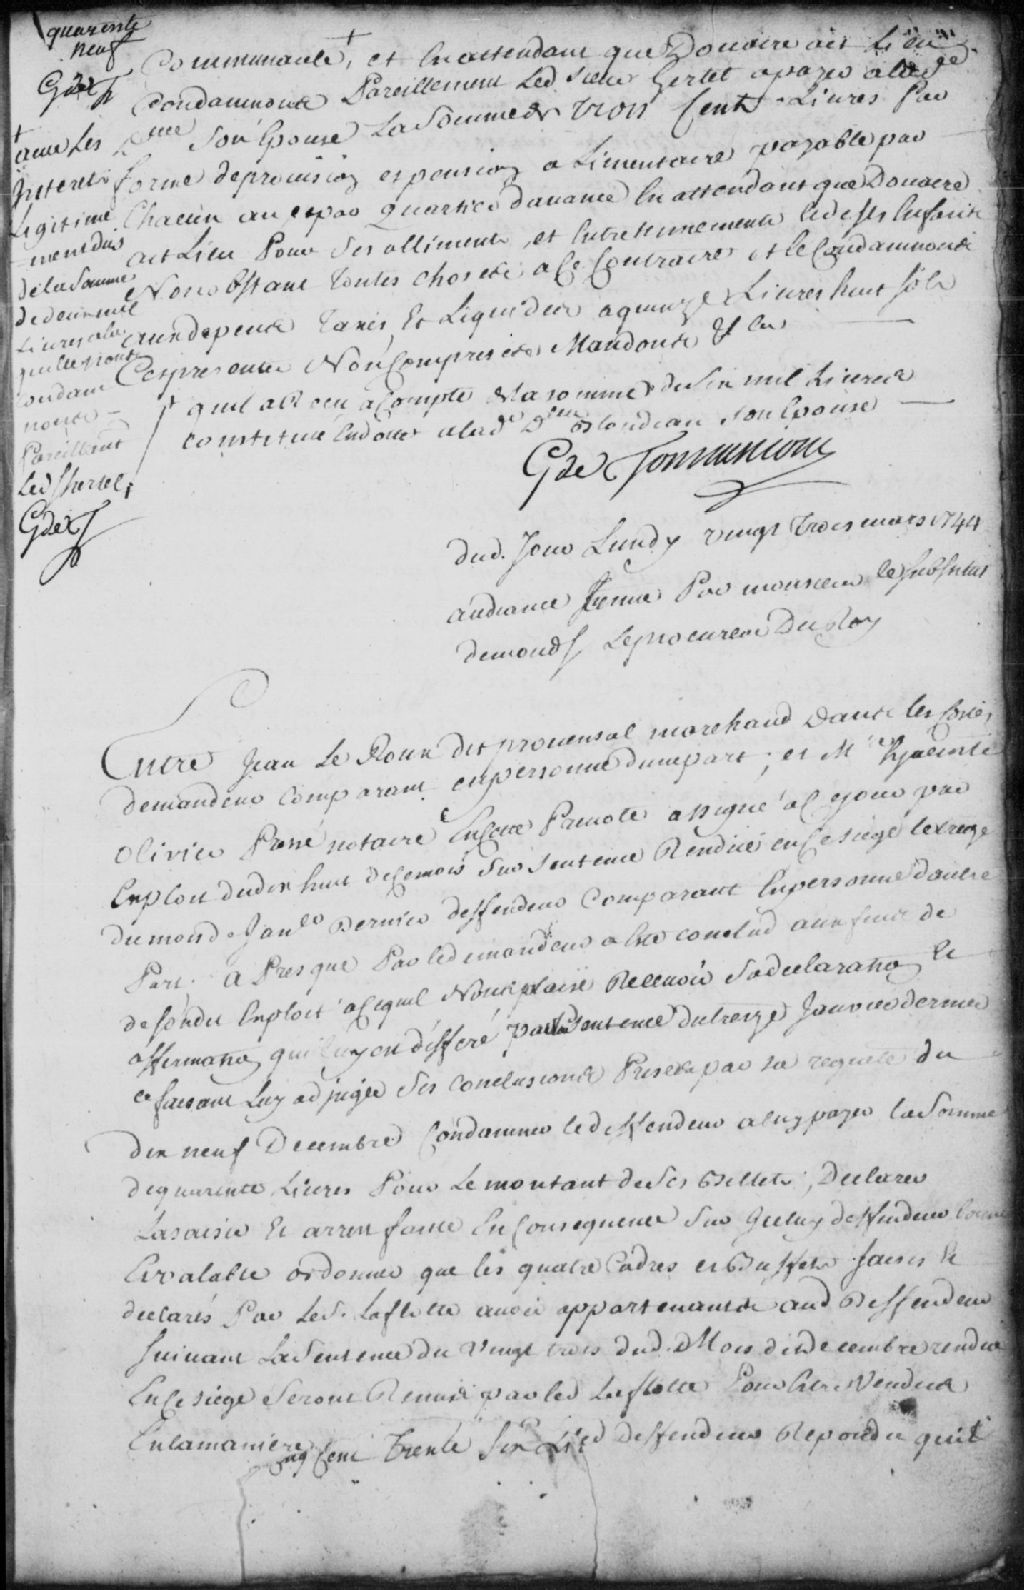 quarente
neuf
GdeT
Communauté, + et En attendant que Douaire ait Lieu
Condamnons Pareillement Led Sieur hertel a payer a lad
Dme Son Epouse La Somme de trois Cents Livres Par
forme de provision et pension alimentaire payable par
Chacun an et par Quartier d'avance En attendant que Douaire
ait Lieu Pour Ses alliments et Entretennements
Nonobstant Toutes Choses a Ce Contraires et le Condamnons
aux depens Taxés Et Liquidés a quinze Livres huit sols
Ces presentes Non Comprises Mandons &
quil a Reçu a Compte de la somme de Six mil Livres
constitué En dotte a lad De Blondeau Son Epouse
+
avec Les
Interets
Legitime
ment dus
de la Somme
de deux mil
Livres a la
quelle
condam
nons
Pareillemt
Led Shertel,
GdeT
GdeTonnancour
Dud. Jour Lundy vingt Trois mars 1744
audiance Tenue Par monsieur le Substitut
de monds Le procureur Du Roy
Entre Jean Le Roux dit provensal marchand Dans les Costes
demandeur Comparant en personne d'une part; et Me Hyacinte
Olivier Pressé notaire En Cette Prevoté assigné a Ce jour par
Exploit du dix huit de Ce mois Sur Sentence Rendüe en Ce Siege le treize
du mois de Janer Dernier deffendeur Comparant En personne d'autre
Part. A Pres que Par le demandeur a Eté conclud aux fins de
de Sondit Exploit a Ce quil Nous plaise Recevoir Sa declaration Et
affirmation qui luy est differé par la Sentence du treize Janvier dernier
Ce faisant Luy adjuger Ses Conclusions Prises par sa requete du
dix neuf Decembre Condamner le deffendeur a luy payer la Somme
de quarente Livres Pour Le montant de Ses Billets, Declarer
La saisie Et arrest faitte En Consequence Sur Iceluy deffendeur bonne
Et valable ordonner que les quatre Cadres et Buffets Saisis Et
declarés Par Le S. Laflotte avoir appartenants aud Deffendeur
Suivant La Sentence du vingt trois dud. Mois de Decembre rendüe
En Ce Siege Seront Remis par led Laflotte Pour Etre Vendus
En la maniere
Cinq Cent Trente Six Led Deffendeur Repondu quil